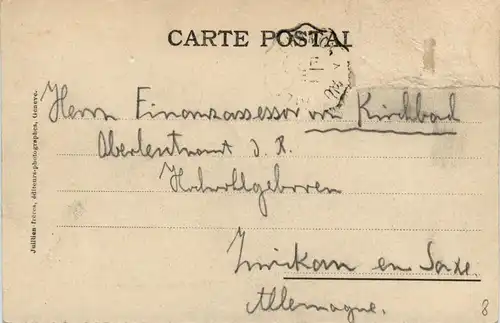 CARTE POSTALE
Herrn Finanzassessor von Kirchbach
Oberleutnant d. R.
Hochwohlgeboren
Zwickau en Saxe.
Allemagne.
8
Jullien frères, éditeurs-photographes, Genève.